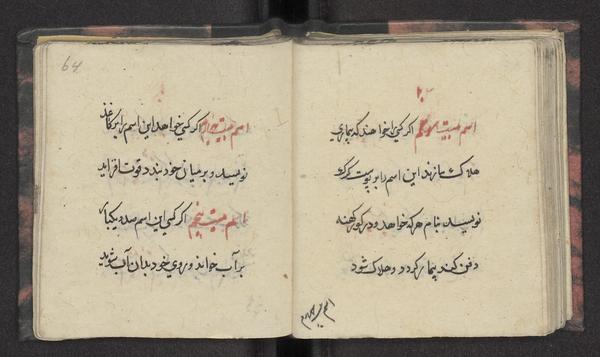 اسم بیست سیم اگر کسی را خواهند که بیماری
هلاک سازند این اسم را بر پوست گرگ
نویسد بنام هر که خواهد و در گور کهنه
دفن کند بیمار گردد و هلاک شود
اسم
64
اسم بیست چهارم اگر کسی خواهد این اسم را بر کاغذ
نویسد و بر میان خود بندد قوت افزاید
اسم بیست پنجم اگر کسی این اسم صد و یکبار
بر آب خواند و روی خود بدان آب شوید